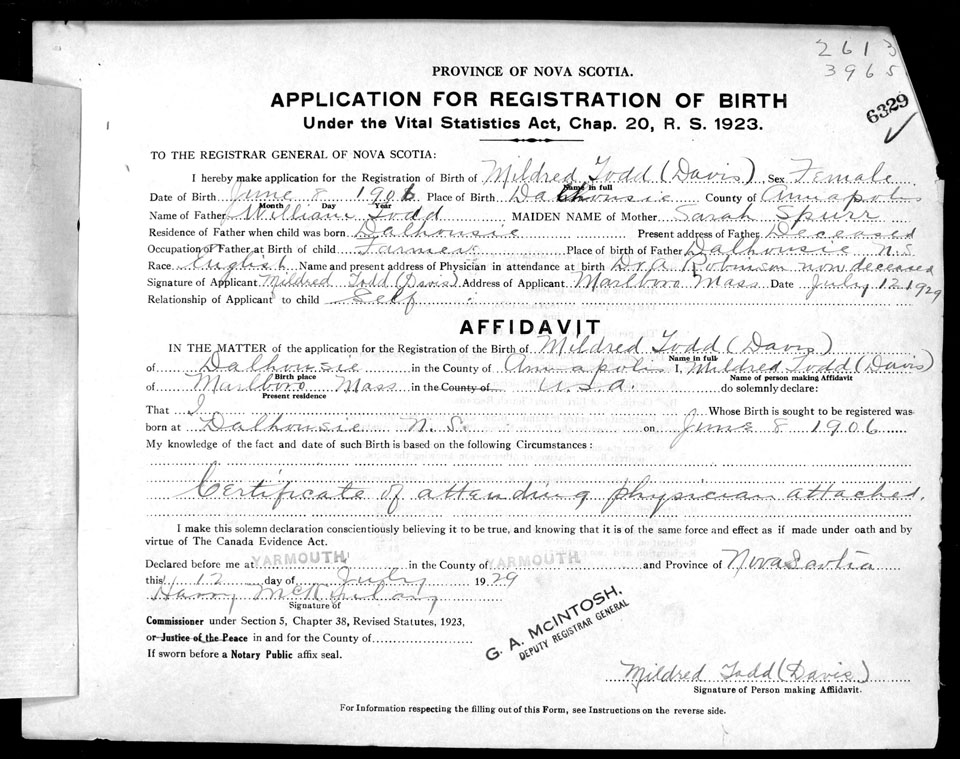 2613
3965
6329
PROVINCE OF NOVA SCOTIA.
APPLICATION FOR REGISTRATION OF BIRTH
Under the Vital Statistics Act, Chap. 20, R. S. 1923.
TO THE REGISTRAR GENERAL OF NOVA SCOTIA:
I hereby make application for the Registration of Birth of Mildred Todd (Davis) Sex Female
Name in full
Date of Birth June 8 1906 Place of Birth Dalhousie County of Annapolis
Month Day Year
Name of Father William Todd MAIDEN NAME of Mother Sarah Spurr
Residence of Father when child was born Dalhousie Present address of Father Deceased
Occupation of Father at Birth of child Farmer Place of birth of Father Dalhousie N.S.
Race English Name and present address of Physician in attendance at birth Dr. A Robinson now deceased
Signature of Applicant Mildred Todd (Davis) Address of Applicant Marlboro Mass Date July 12 1929
Relationship of Applicant to child Self
AFFIDAVIT
IN THE MATTER of the application for the Registration of the Birth of Mildred Todd (Davis)
Name in full
of Dalhousie in the County of Annapolis I, Mildred Todd (Davis)
Birth place Name of person making Affidavit
of Marlboro Mass in the County of U.S.A. do solemnly declare:
Present residence
That I Whose Birth is sought to be registered was
born at Dalhousie N.S. on June 8 1906
My knowledge of the fact and date of such Birth is based on the following Circumstances:
Certificate of attending physician attached.
I make this solemn declaration conscientiously believing it to be true, and knowing that it is of the same force and effect as if made under oath and by
virtue of The Canada Evidence Act.
Declared before me at YARMOUTH in the County of YARMOUTH and Province of Nova Scotia
this 12 day of July 1929
Harry
Signature of
Commissioner under Section 5, Chapter 38, Revised Statutes, 1923,
or Justice of the Peace in and for the County of
If sworn before a Notary Public affix seal.
G. A. MCINTOSH,
DEPUTY REGISTRAR GENERAL
Mildred Todd (Davis)
Signature of Person making Affidavit.
For Information respecting the filling out of this Form, see Instructions on the reverse side.